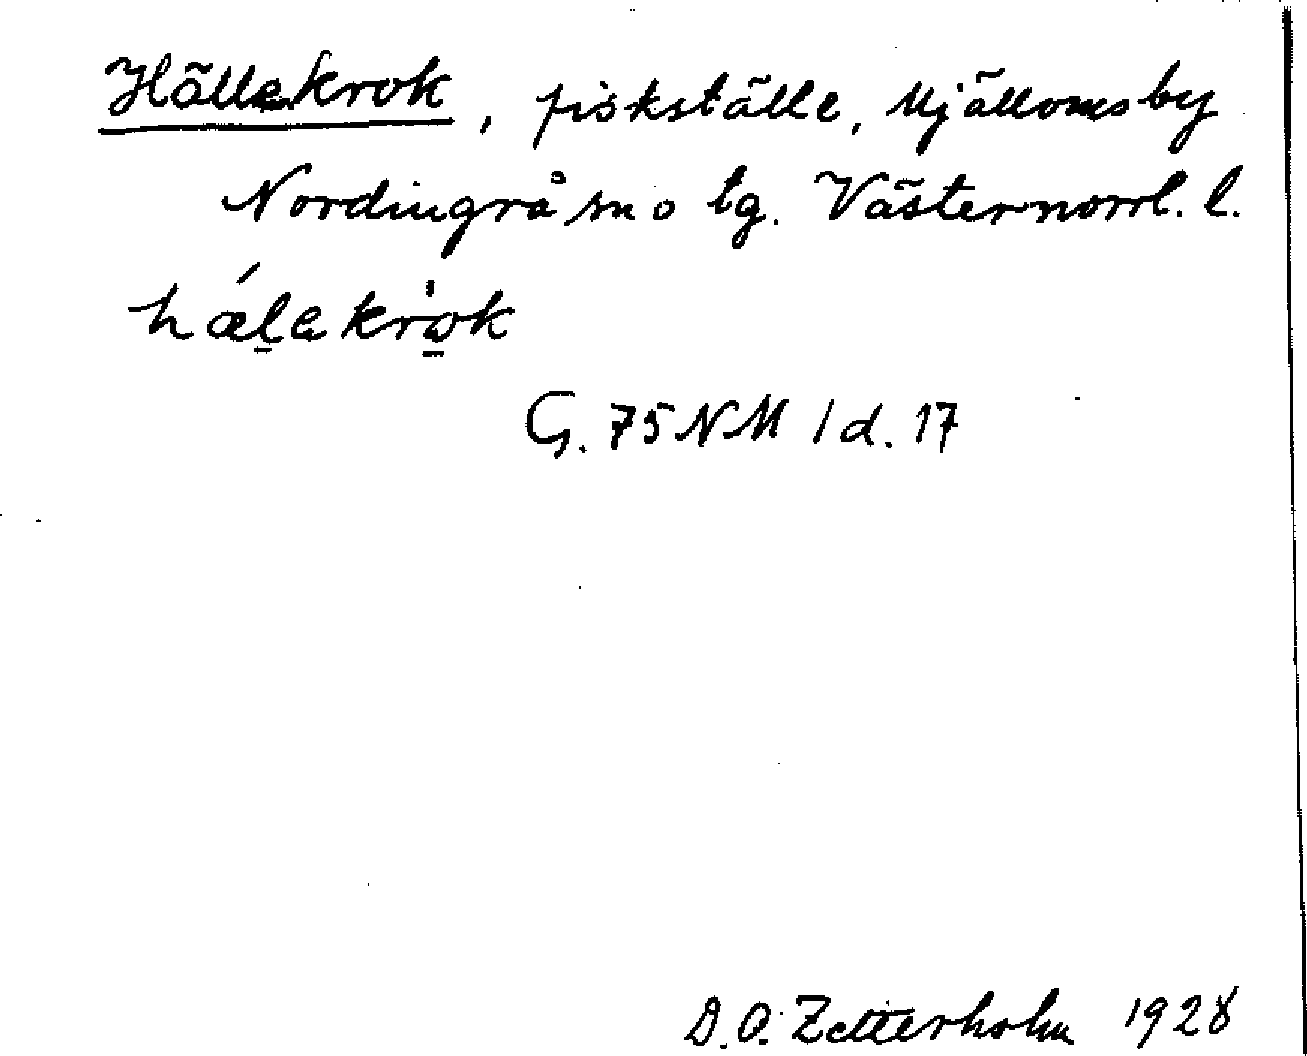 Hällekrok, fiskställe, Mjällomsby
Nordingrå sn o tg. Västernorrl. l.
hǽlekrok
G. 75 NM 1 d. 17
D. O. Zetterholm 1928